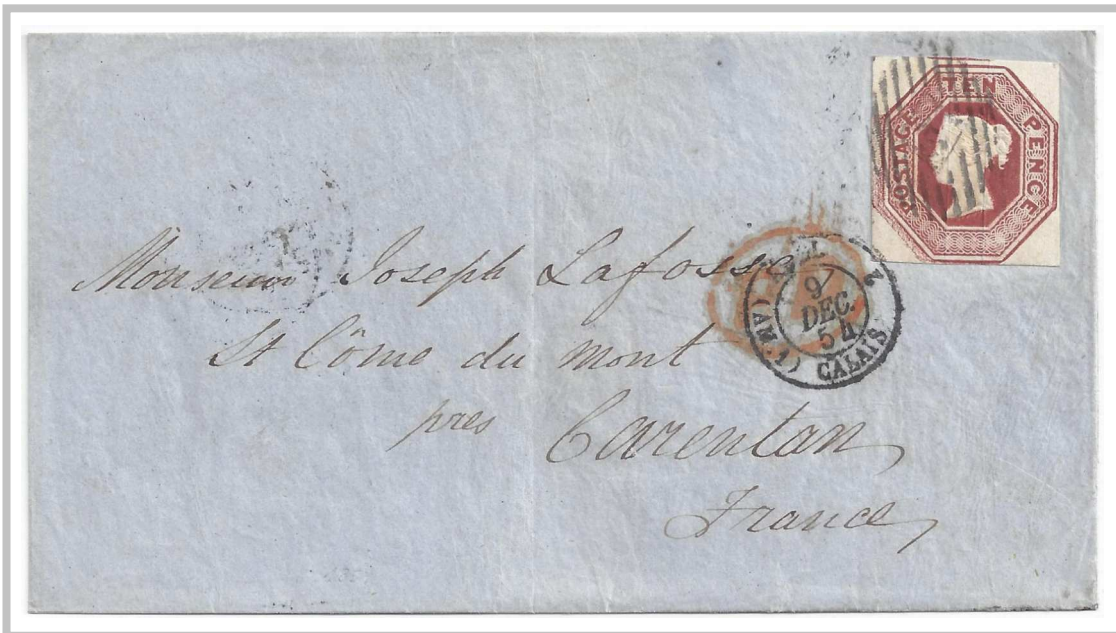 POSTAGE TEN PENCE
Monsieur Joseph Lafosse
St Côme du Mont
près
Carentan
France
ANGL. 2
9
DEC.
54
(AMB. CALAIS